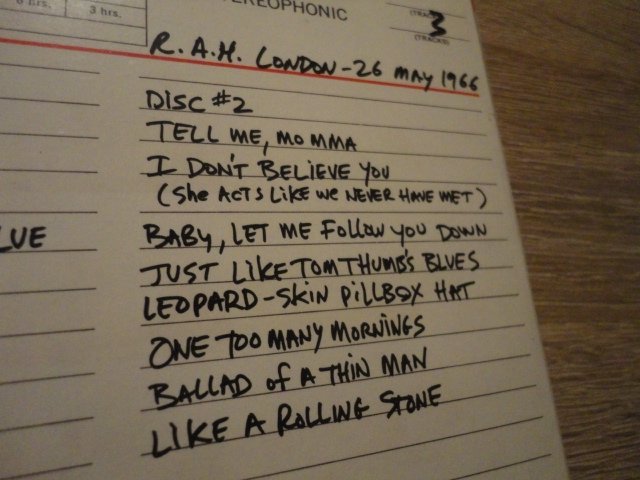 3 hrs.
STEREOPHONIC
3
(TRACKS)
R.A.H. LONDON-26 MAY 1966
DISC #2
TELL ME, MOMMA
I DON'T BELIEVE YOU
(She ACTS LIKE WE NEVER HAVE MET)
BABY, LET ME FOLLOW YOU DOWN
JUST LIKE TOM THUMB'S BLUES
LEOPARD-SKIN PILLBOX HAT
ONE TOO MANY MORNINGS
BALLAD of A THIN MAN
LIKE A ROLLING STONE